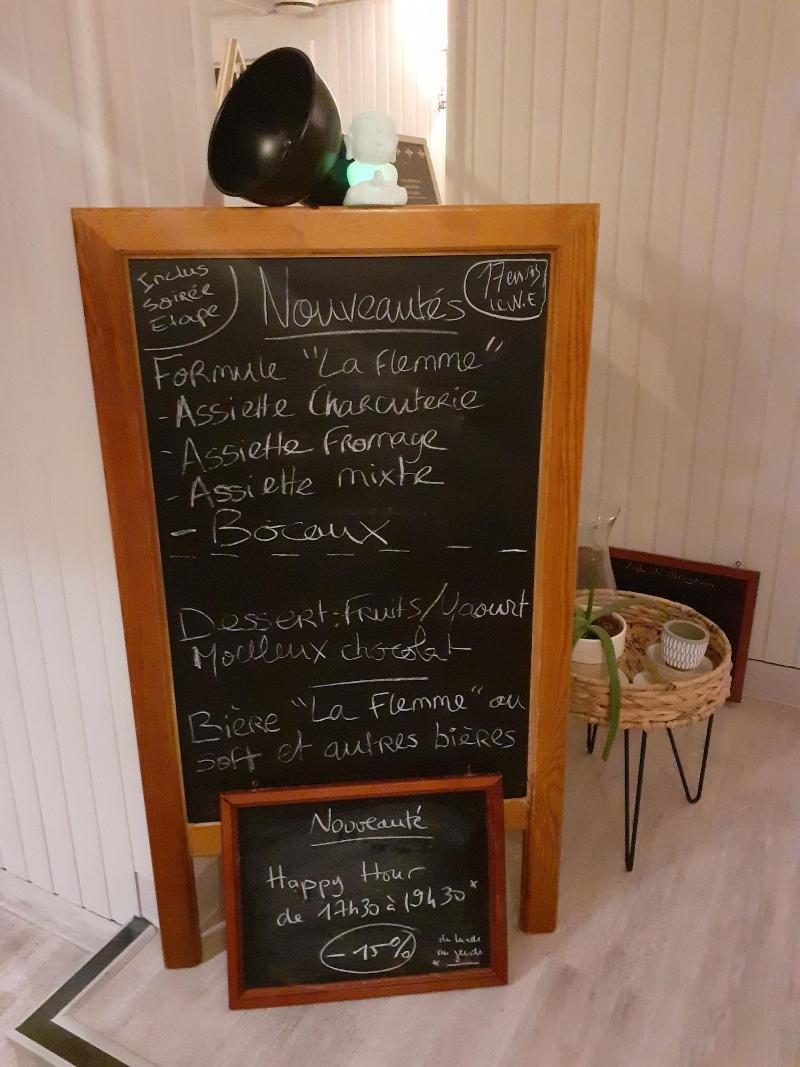 Inclus
Soirée
Etape
Nouveautés
17 en
le W.E
Formule "La Flemme"
- Assiette Charcuterie
- Assiette Fromage
- Assiette mixte
- Bocaux
Dessert: Fruits/Yaourt
Moelleux chocolat
Bière "La Flemme" ou
soft et autres bières
Nouveauté
Happy Hour
de 17h30 à 19h30*
- 15%
du lundi
au jeudi
*